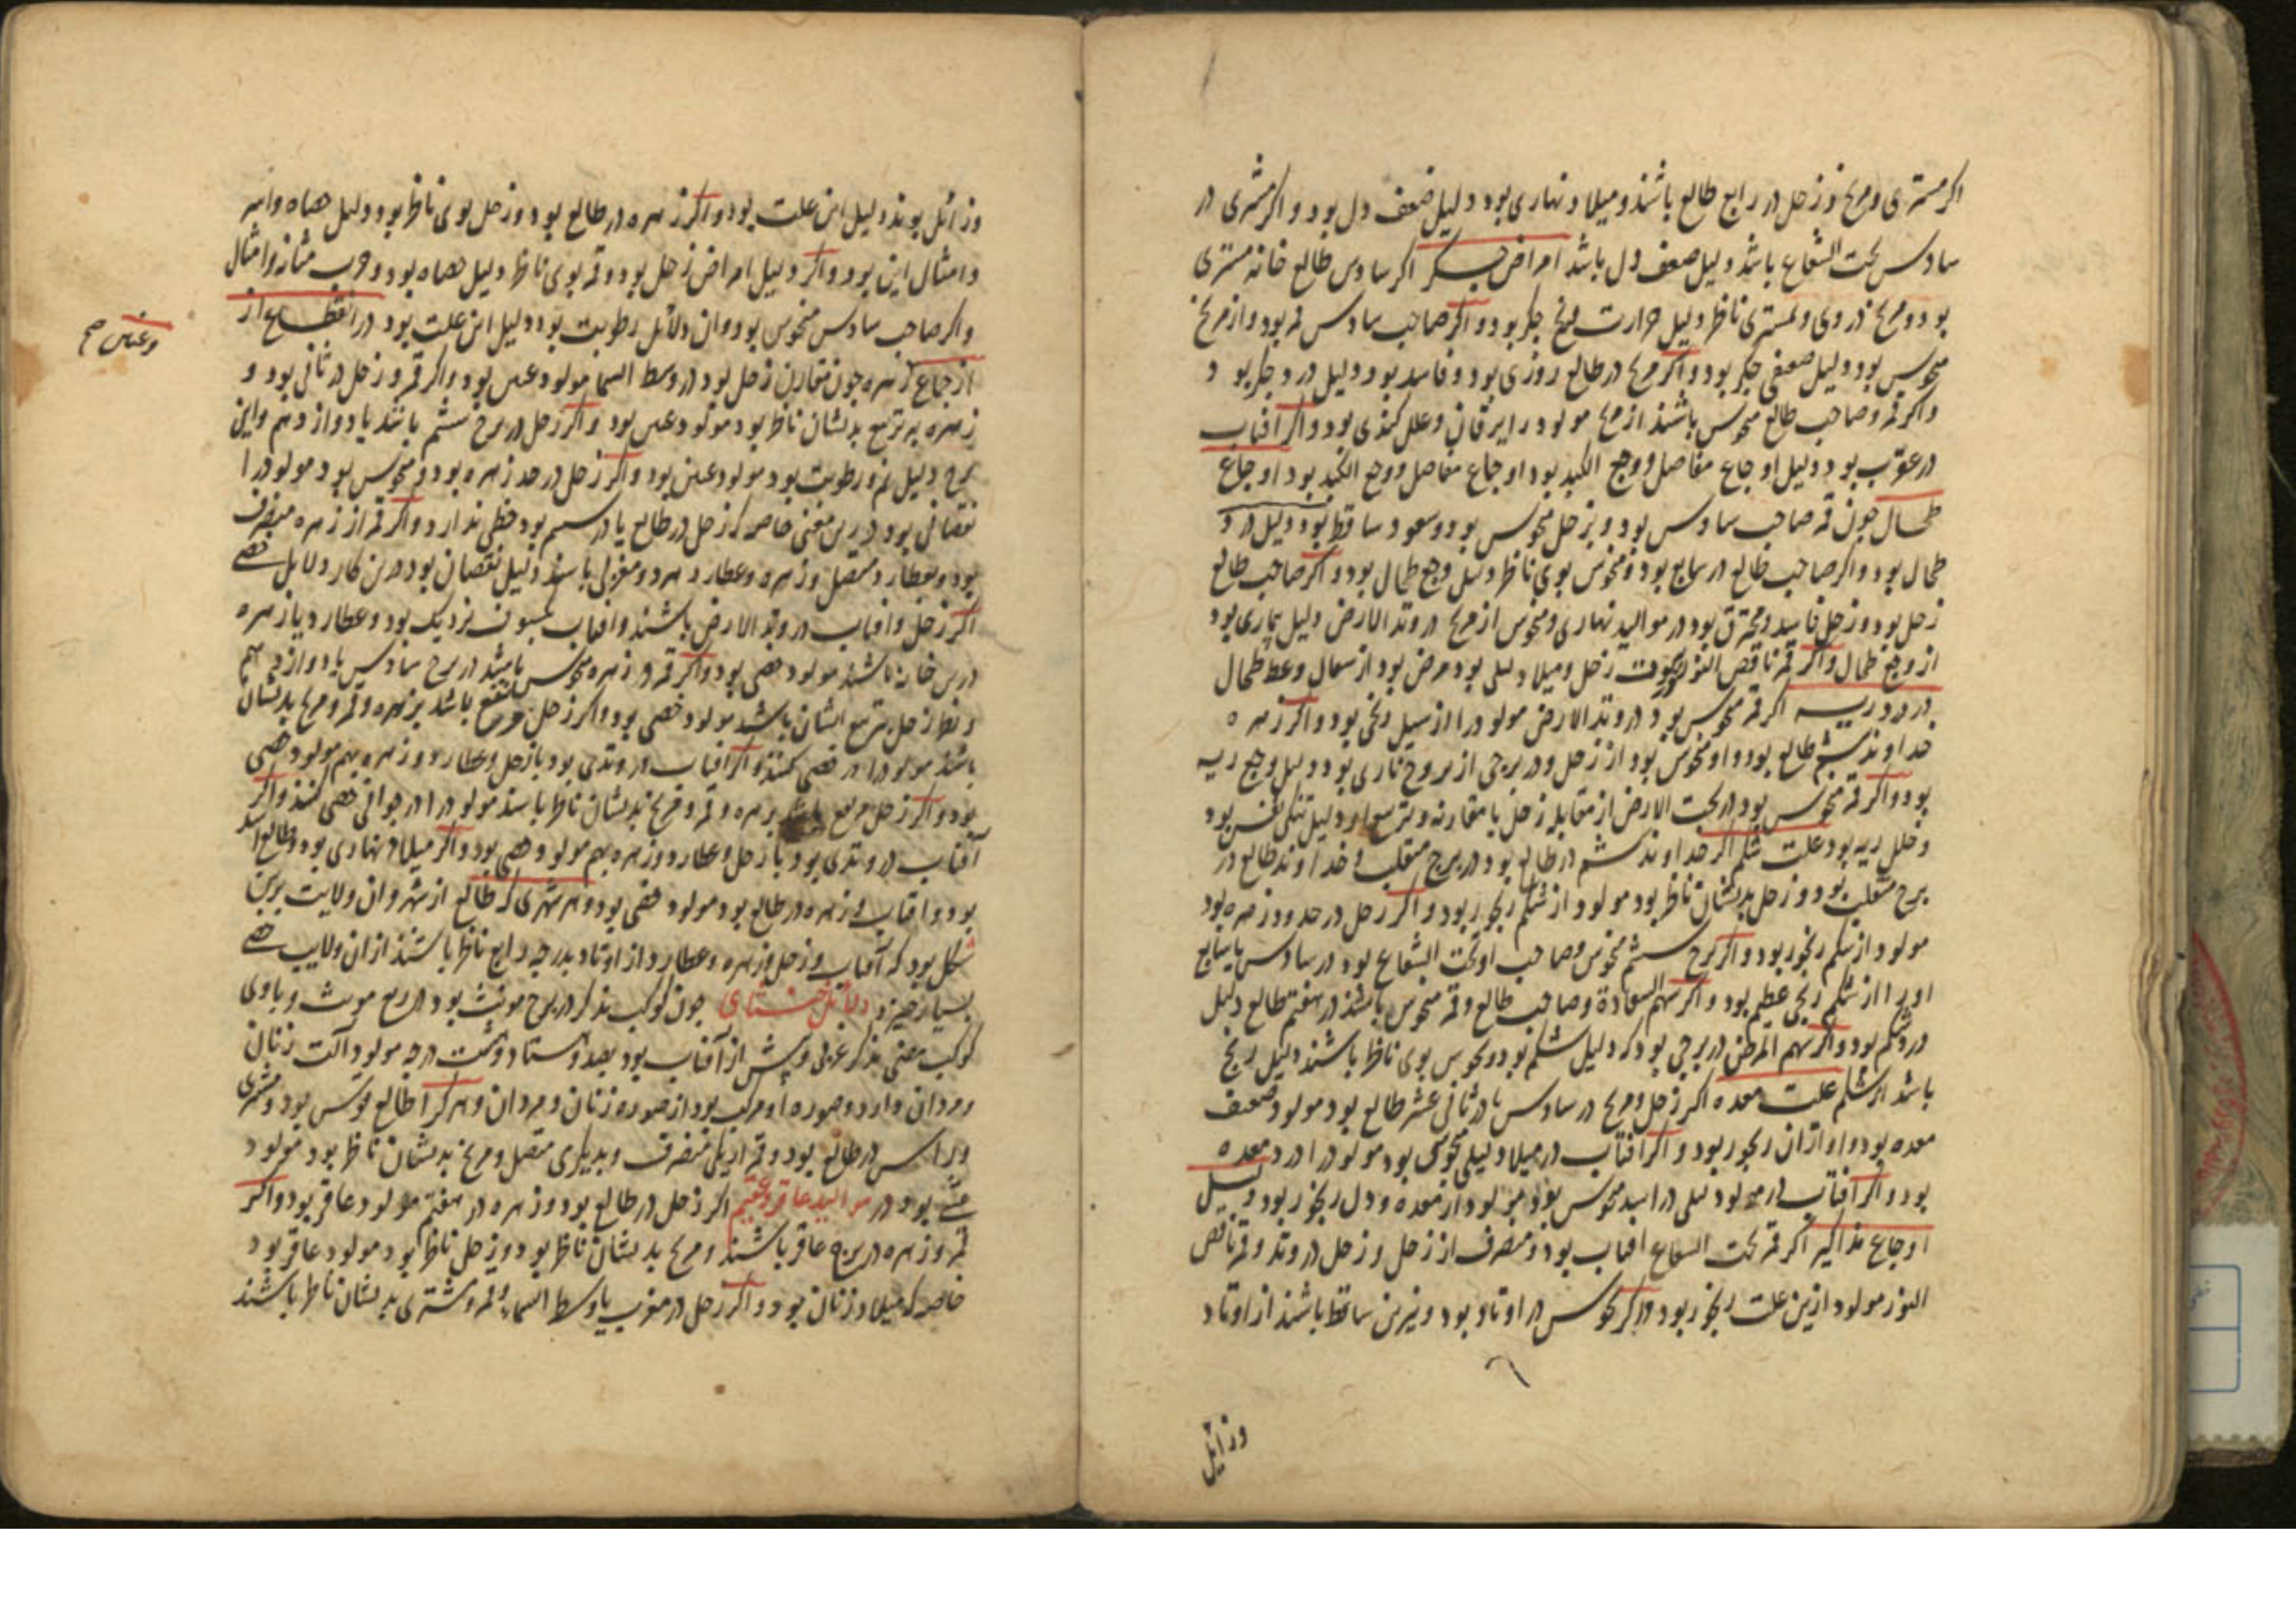 اکر مشتری و مریخ و زحل در رابع طالع باشند و میلاد نهاری بود دلیل ضعف دل بود و اکر مشتری در
سادس تحت الشعاع باشد دلیل ضعف دل باشد امراض جکر اکر سادس طالع خانه مشتری
بود و مریخ در وی و بمشتری ناظر دلیل حرارت و رنج جکر بود و اکر صاحب سادس قمر بود و از مریخ
منحوس بود دلیل ضعفی جکر بود و اکر مریخ در طالع روزی بود و فاسد بود دلیل درد جکر بود
و اکر قمر و صاحب طالع منحوس باشند از مریخ مولود را یرقان و علل کبدی بود و اکر افتاب
در عقرب بود دلیل اوجاع مفاصل و وجع الکبد بود اوجاع مفاصل و وجع الکبد بود اوجاع
طحال جون قمر صاحب سادس بود و بزحل منحوس بود و سعود ساقط بود دلیل درد
طحال بود و اکر صاحب طالع در سابع بود و منحوس بوی ناظر دلیل وجع طحال بود و اکر صاحب طالع
زحل بود و زحل فاسد و محترق بود در موالید نهاری و منحوس از مریخ در وتد الارض دلیل بیماری بود
از وجع طحال و اکر قمر ناقص النور زحل و میلاد لیلی بود مرض بود از سعال و طحال
درد ریه اکر قمر منحوس بود در وتد الارض مولود را از سل رنجی بود و اکر زهره
خداوند ششم طالع بود و او منحوس بود از زحل و در برجی از بروج ناری بود دلیل وجع ریه
بود و اکر قمر منحوس بود در تحت الارض از مقابله زحل یا مقارنه و تربیع او دلیل تنکی نفس بود
و خلل ریه بود علت شکم اکر خداوند ششم در طالع بود در برج منقلب و خداوند طالع در
برج منقلب بود و زحل بدیشان ناظر بود مولود از شکم رنجور بود و اکر زحل در حدود زهره بود
مولود از شکم رنجور بود و اکر برج ششم منحوس و صاحب او تحت الشعاع بود در سادس یا سابع
او را از شکم رنجی عظیم بود و اکر سهم السعادة و صاحب طالع و قمر منحوس باشند در هفتم طالع دلیل
درد شکم بود و اکر سهم المرض در برجی بود که دلیل شکم بود و نحوس بوی ناظر باشند دلیل رنج
باشد از شکم علت معده اکر زحل و مریخ در سادس یا در ثانی عشر طالع بود مولود ضعیف
معده بود و او از ان رنجور بود و اکر افتاب در میلاد لیلی منحوس بود مولود را درد معده
بود و اکر افتاب در مولود لیلی در اسد منحوس بود مولود از معده و دل رنجور بود دلیل
اوجاع مذاکیر اکر قمر تحت الشعاع افتاب بود و منصرف از زحل و زحل در وتد و قمر ناقص
النور مولود ازین علت رنجور بود و اکر نحوس در اوتاد بود و نیرین ساقط باشند از اوتاد
وزایل
وزائل بوند دلیل این علت بود و اکر زهره در طالع بود و زحل بوی ناظر بود دلیل
و امثال این بود و اکر دلیل امراض زحل بود و قمر بوی ناظر دلیل حصاه بود و جرب مثانه و امثال
و اکر صاحب سادس منحوس بود و ان دلائل رطوبت بود دلیل این علت بود در انقطاع از
از جماع زهره جون مقارن زحل بود در وسط السما مولود عنین بود و اکر قمر و زحل در ثانی بود و
زهره بر تربیع بدیشان ناظر بود مولود عنین بود و اکر زحل در برج ششم باشد یا دوازدهم و این
برج دلیل نم و رطوبت بود مولود عنین بود و اکر زحل در حد زهره بود و منحوس بود مولود را
نقصانی بود درین معنی خاصه که زحل در طالع یا در سیم بود حظی ندارد و اکر قمر از زهره منصرف
بود و بعطارد متصل و زهره و عطارد هر دو مغربی باشند دلیل نقصان بود درین کار دلایل خصی
اکر زحل و افتاب در وتد الارض باشند و افتاب بکسوف نزدیک بود و عطارد یا زهره
درین خانه باشند مولود خصی بود و اکر قمر و زهره منحوس باشند در برج سادس یا دوازدهم
و نظر زحل بتربیع ایشان باشد مولود خصی بود و اکر زحل مرتفع باشد بزهره و قمر و مریخ بدیشان
باشد مولود را در خصی کنند و اکر افتاب در وتدی بود با زحل و عطارد و زهره بهم مولود خصی
بود و اکر زحل مرتفع باشد بزهره و قمر و مریخ بدیشان ناظر باشد مولود را در جوانی خصی کنند و اکر
آفتاب در وتدی بود با زحل و عطارد و زهره بهم مولود خصی بود و اکر میلاد نهاری بود و طالع اسد
بود و افتاب و زهره در طالع بود مولود خصی بود و هر شهری که طالع از شهر و ان ولایت برین
شکل بود که آفتاب و زحل و زهره و عطارد از اوتاد بدرجه رابع ناظر باشند از ان ولایت خصی
بسیار خیزد دلائل خنثای جون کوکب مذکر در برج مونث بود در ربع مونث و باوی
کوکب معنی مذکر غربی و پیش از آفتاب بود بعد و هشتاد و هشت درجه مولود آلت زنان
و مردان دارد و صوره او مرکب بود از صوره زنان و مردان و هر کرا طالع قوس بود و مشتری
و راس در طالع بود و قمر از یکی منصرف و بدیکری متصل و مریخ بدیشان ناظر بود مولود
خنثی بود در موالید عاقر و عقیم اکر زحل در طالع بود و زهره در هفتم مولود عاقر بود و اکر
قمر و زهره در برج عاقر باشند و مریخ بدیشان ناظر بود و بزحل ناظر بود مولود عاقر بود
خاصه که میلاد زنان بود و اکر زحل در مغرب یا وسط السماء و قمر و مشتری بدیشان ناظر باشند